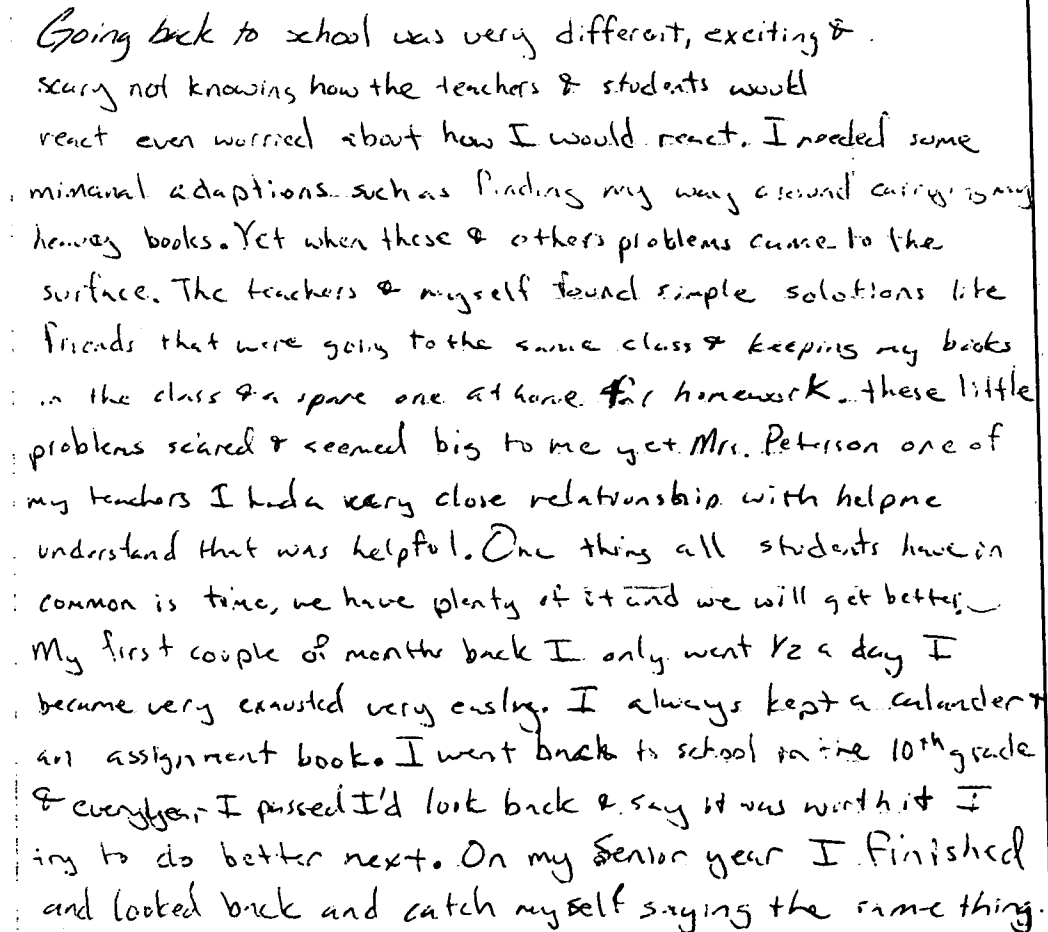 Going back to school was very different, exciting &
scary not knowing how the teachers & students would
react even worried about how I would react. I needed some
mimanal adaptions such as finding my way around carrying my
heavey books. Yet when these & others problems came to the
surface. The teachers & myself found simple solutions like
friends that were going to the same class & keeping my books
in the class & a spare one at home for homework. these little
problems scared & seemed big to me yet Mrs. Peterson one of
my teachers I had a very close relationship with help me
understand that was helpful. One thing all students have in
common is time, we have plenty of it and we will get better.
My first couple of months back I only went 1/2 a day I
became very exausted very easley. I always kept a calander &
an assignment book. I went back to school in the 10th grade
& everyyear I passed I'd look back & say it was worth it I
try to do better next. On my senior year I finished
and looked back and catch myself saying the same thing.